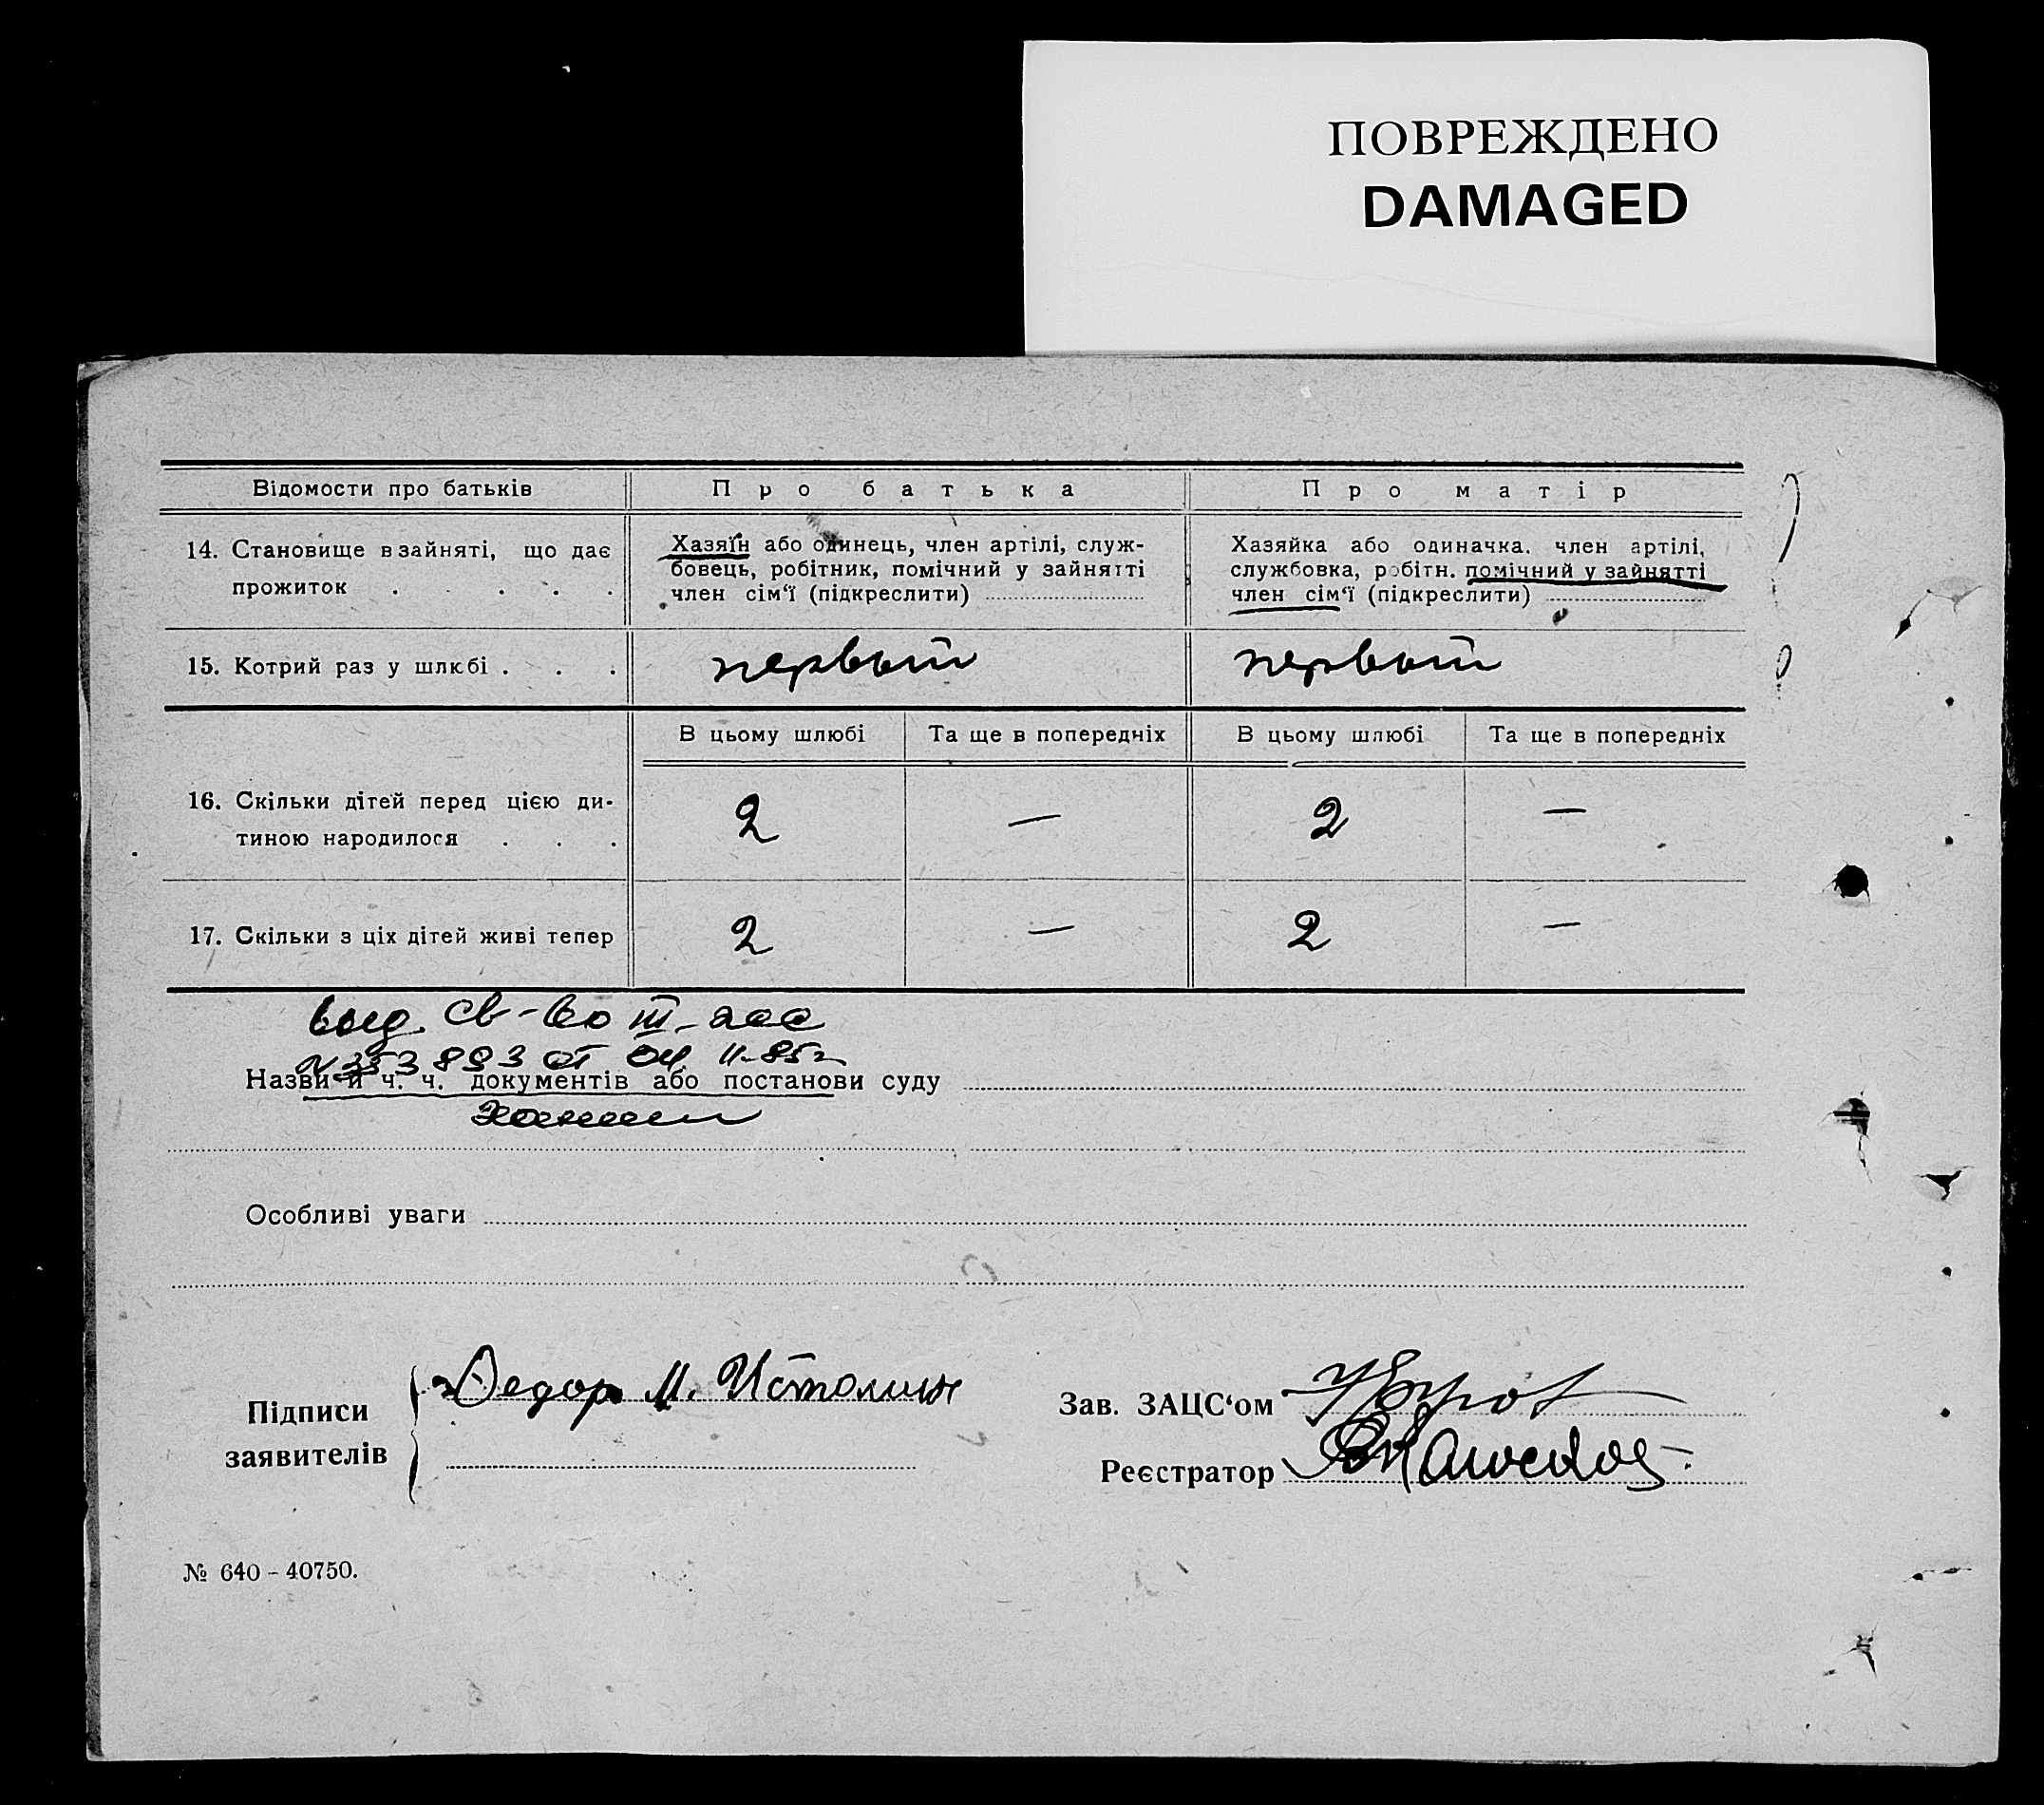 ПОВРЕЖДЕНО
DAMAGED
Відомости про батьків
Про батька
Про матір
14. Становище в зайняті, що дає
прожиток . . . .
Хазяїн або одинець, член артілі, служ-
бовець, робітник, помічний у зайнятті
член сім'ї (підкреслити)
Хазяйка або одиначка. член артілі,
службовка, робітн. помічний у зайнятті
член сім'ї (підкреслити)
15. Котрий раз у шлюбі . . .
первый
первый
В цьому шлюбі
Та ще в попередніх
В цьому шлюбі
Та ще в попередніх
16. Скільки дітей перед цією ди-
тиною народилося . . .
2
—
2
—
17. Скільки з ціх дітей живі тепер
2
—
2
—
выд. св-во III-
N 353893 от 04. 11-85г
Назви й ч. ч. документів або постанови суду
Особливі уваги
Підписи
заявителів
Федор М.
Зав. ЗАЦС'ом
Реєстратор
№ 640 - 40750.